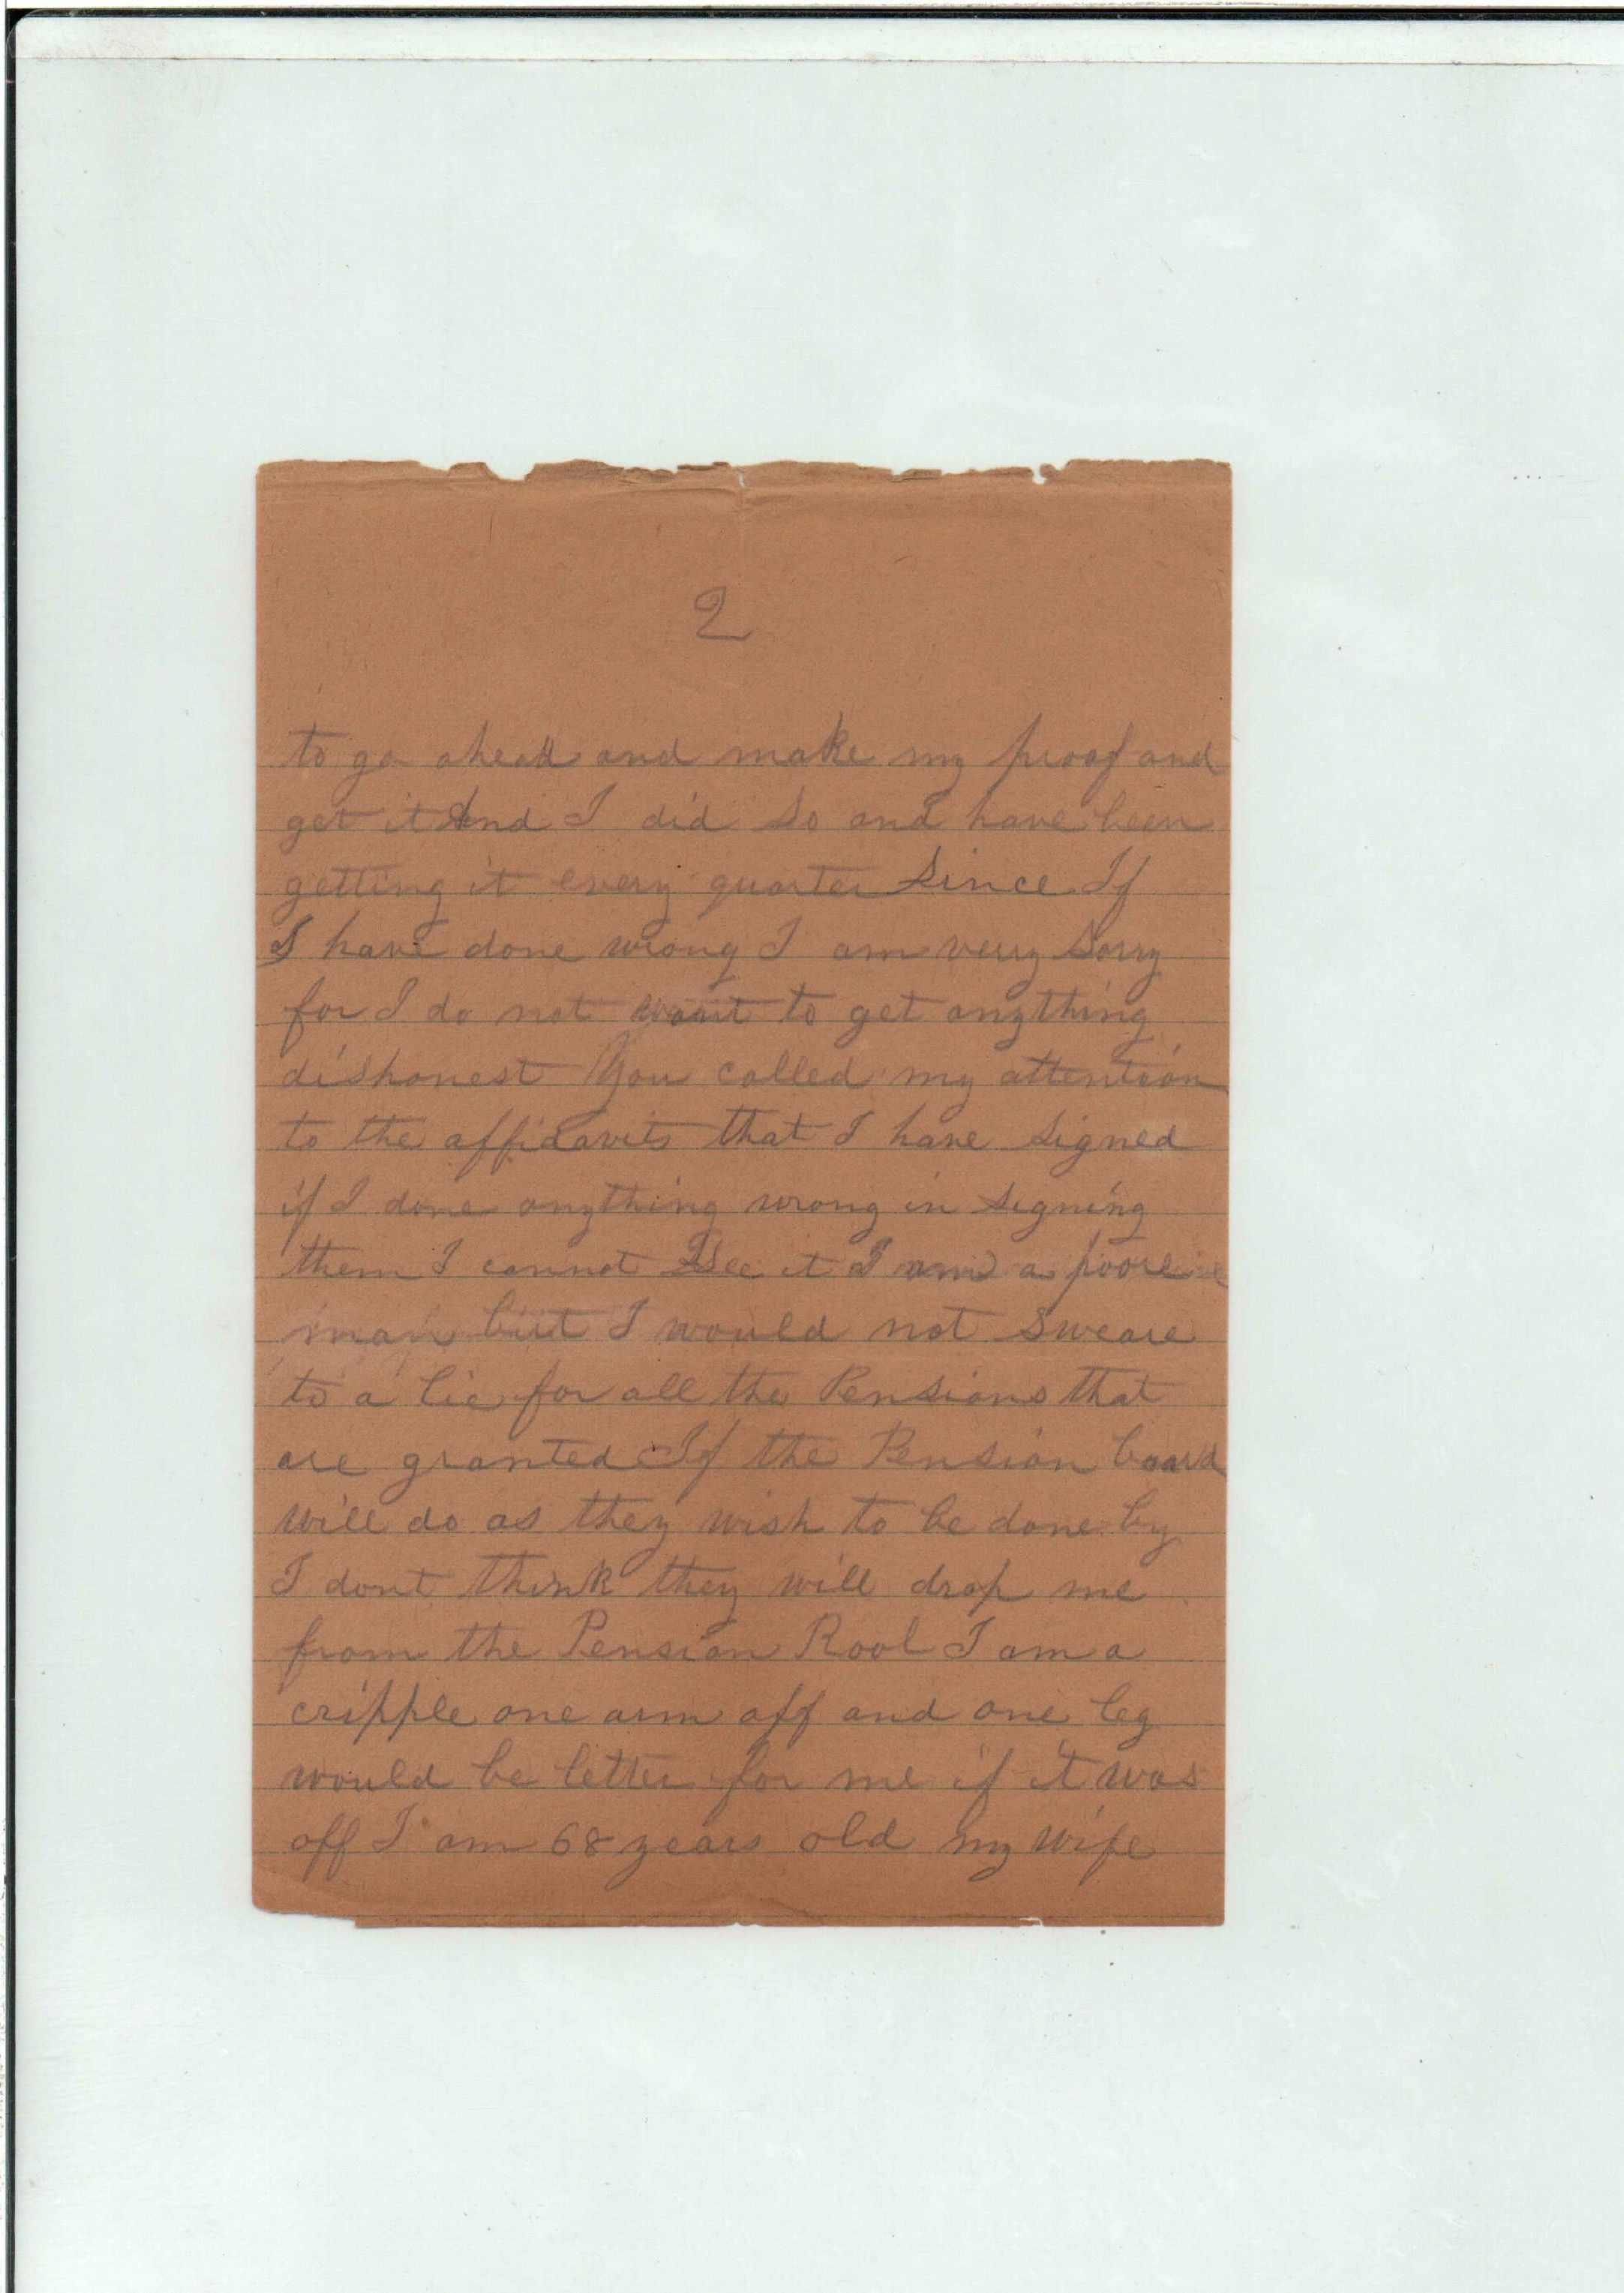 2
to go ahead and make my proof and
get it And I did so and have been
getting it every quarter since If
I have done wrong I am very sorry
for I do not want to get anything
dishonest You called my attention
to the affidavits that I have signed
if I done anything wrong in signing
them I cannot See it I am a poore
man but I would not sweare
to a lie for all the Pensions that
are granted If the Pension board
will do as they wish to be done by
I dont think they will drop me
from the Pension Rool I am a
cripple one arm off and one leg
would be better for me if it was
off I am 68 years old my wife